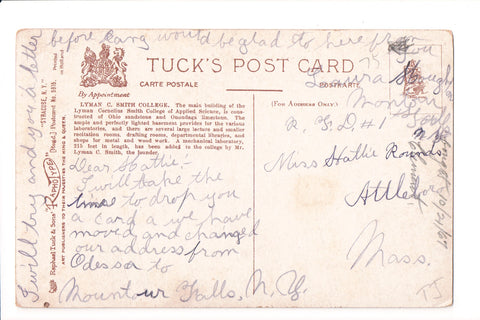 TUCK'S POST CARD
CARTE POSTALE
POSTKARTE
By Appointment
LYMAN C. SMITH COLLEGE. The main building of the
Lyman Cornelius Smith College of Applied Science, is constructed
of Ohio sandstone and Onondaga limestone. The
ample and perfectly lighted basement provides for the various
laboratories, and there are several large lecture and smaller
recitation rooms, drafting rooms, departmental libraries, and
shops for metal and wood work. A mechanical laboratory,
215 feet in length, has been added to the college by Mr.
Lyman C. Smith, the founder.
(FOR ADDRESS ONLY.)
Raphael Tuck & Sons' "RAPHOTYPE"
"SYRACUSE, N.Y."
Printed in Holland
ART PUBLISHERS TO THEIR MAJESTIES THE KING & QUEEN.
Dear Hattie:-
I will take the
time to drop you
a card a we have
moved and changed
our address from
Odessa to
Montour Falls, N.Y.
I will try and you a letter
before long would be glad to here from
you
Laura
Montour
R.F.D. #1
Miss Hattie Rounds
Attleboro
Mass.
TJ